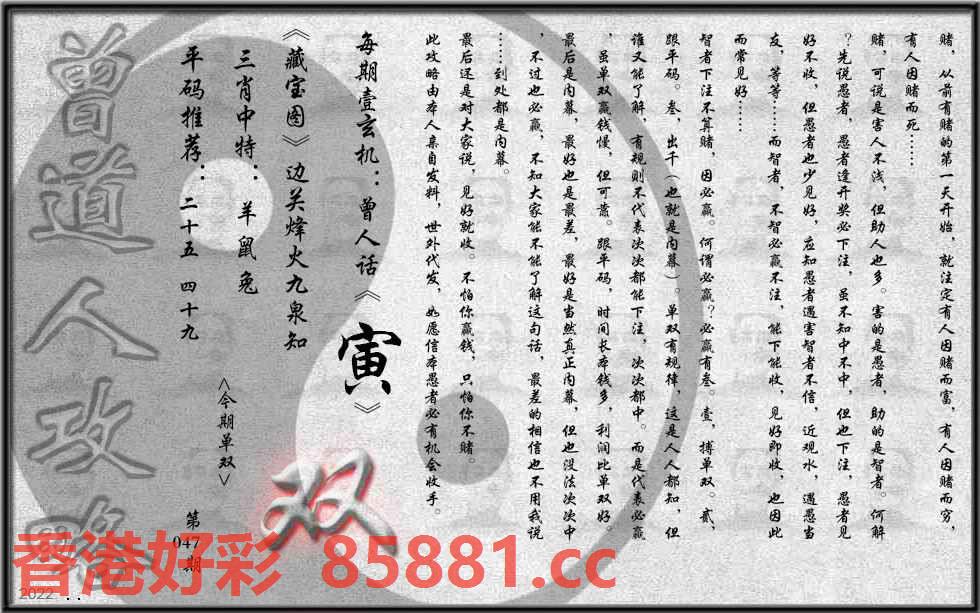 赌，从前有赌的第一天开始，就注定有人因赌而富，有人因赌而穷，
有人因赌而死……
赌，可说是害人不浅，但助人也多。害的是愚者，助的是智者。何解
？先说愚者，愚者逢开奖必下注，虽不知中不中，但也下注，愚者见
好不收，但愚者也少见好，应知愚者遇害智者不信，近观水，遇愚当
友，等等……而智者，不智必赢不注，能下能收，见好即收，也因此
而常见好……
智者下注不算赌，因必赢。何谓必赢？必赢有叁。壹，搏单双。贰，
跟平码。叁，出千（也就是内幕）。单双有规律，这是人人都知，但
谁又能了解，有规则不代表次次都能下注，次次都中。而是代表必赢
，虽单双赢钱慢，但可靠。跟平码，时间长本钱多，利润比单双好。
最后是内幕，最好也是最差，最好是当然真正内幕，但也没法次次中
，不过也必赢，不知大家能不能了解这句话，最差的相信也不用我说
……到处都是内幕。
最后还是对大家说，见好就收。不怕你赢钱，只怕你不赌。
此攻略由本人亲自发料，世外代发，如愿信本愚者必有机会收手。
每期壹玄机：曾人话《寅》
《藏宝图》边关烽火九泉知
三肖中特：羊鼠兔
平码推荐：二十五 四十九
<今期单双>
双
第
047
期
曾道人攻略
香港好彩 85881.cc
2022